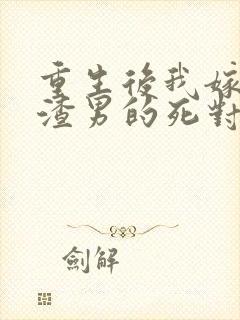 重生後我嫁
渣男的死對
劍解